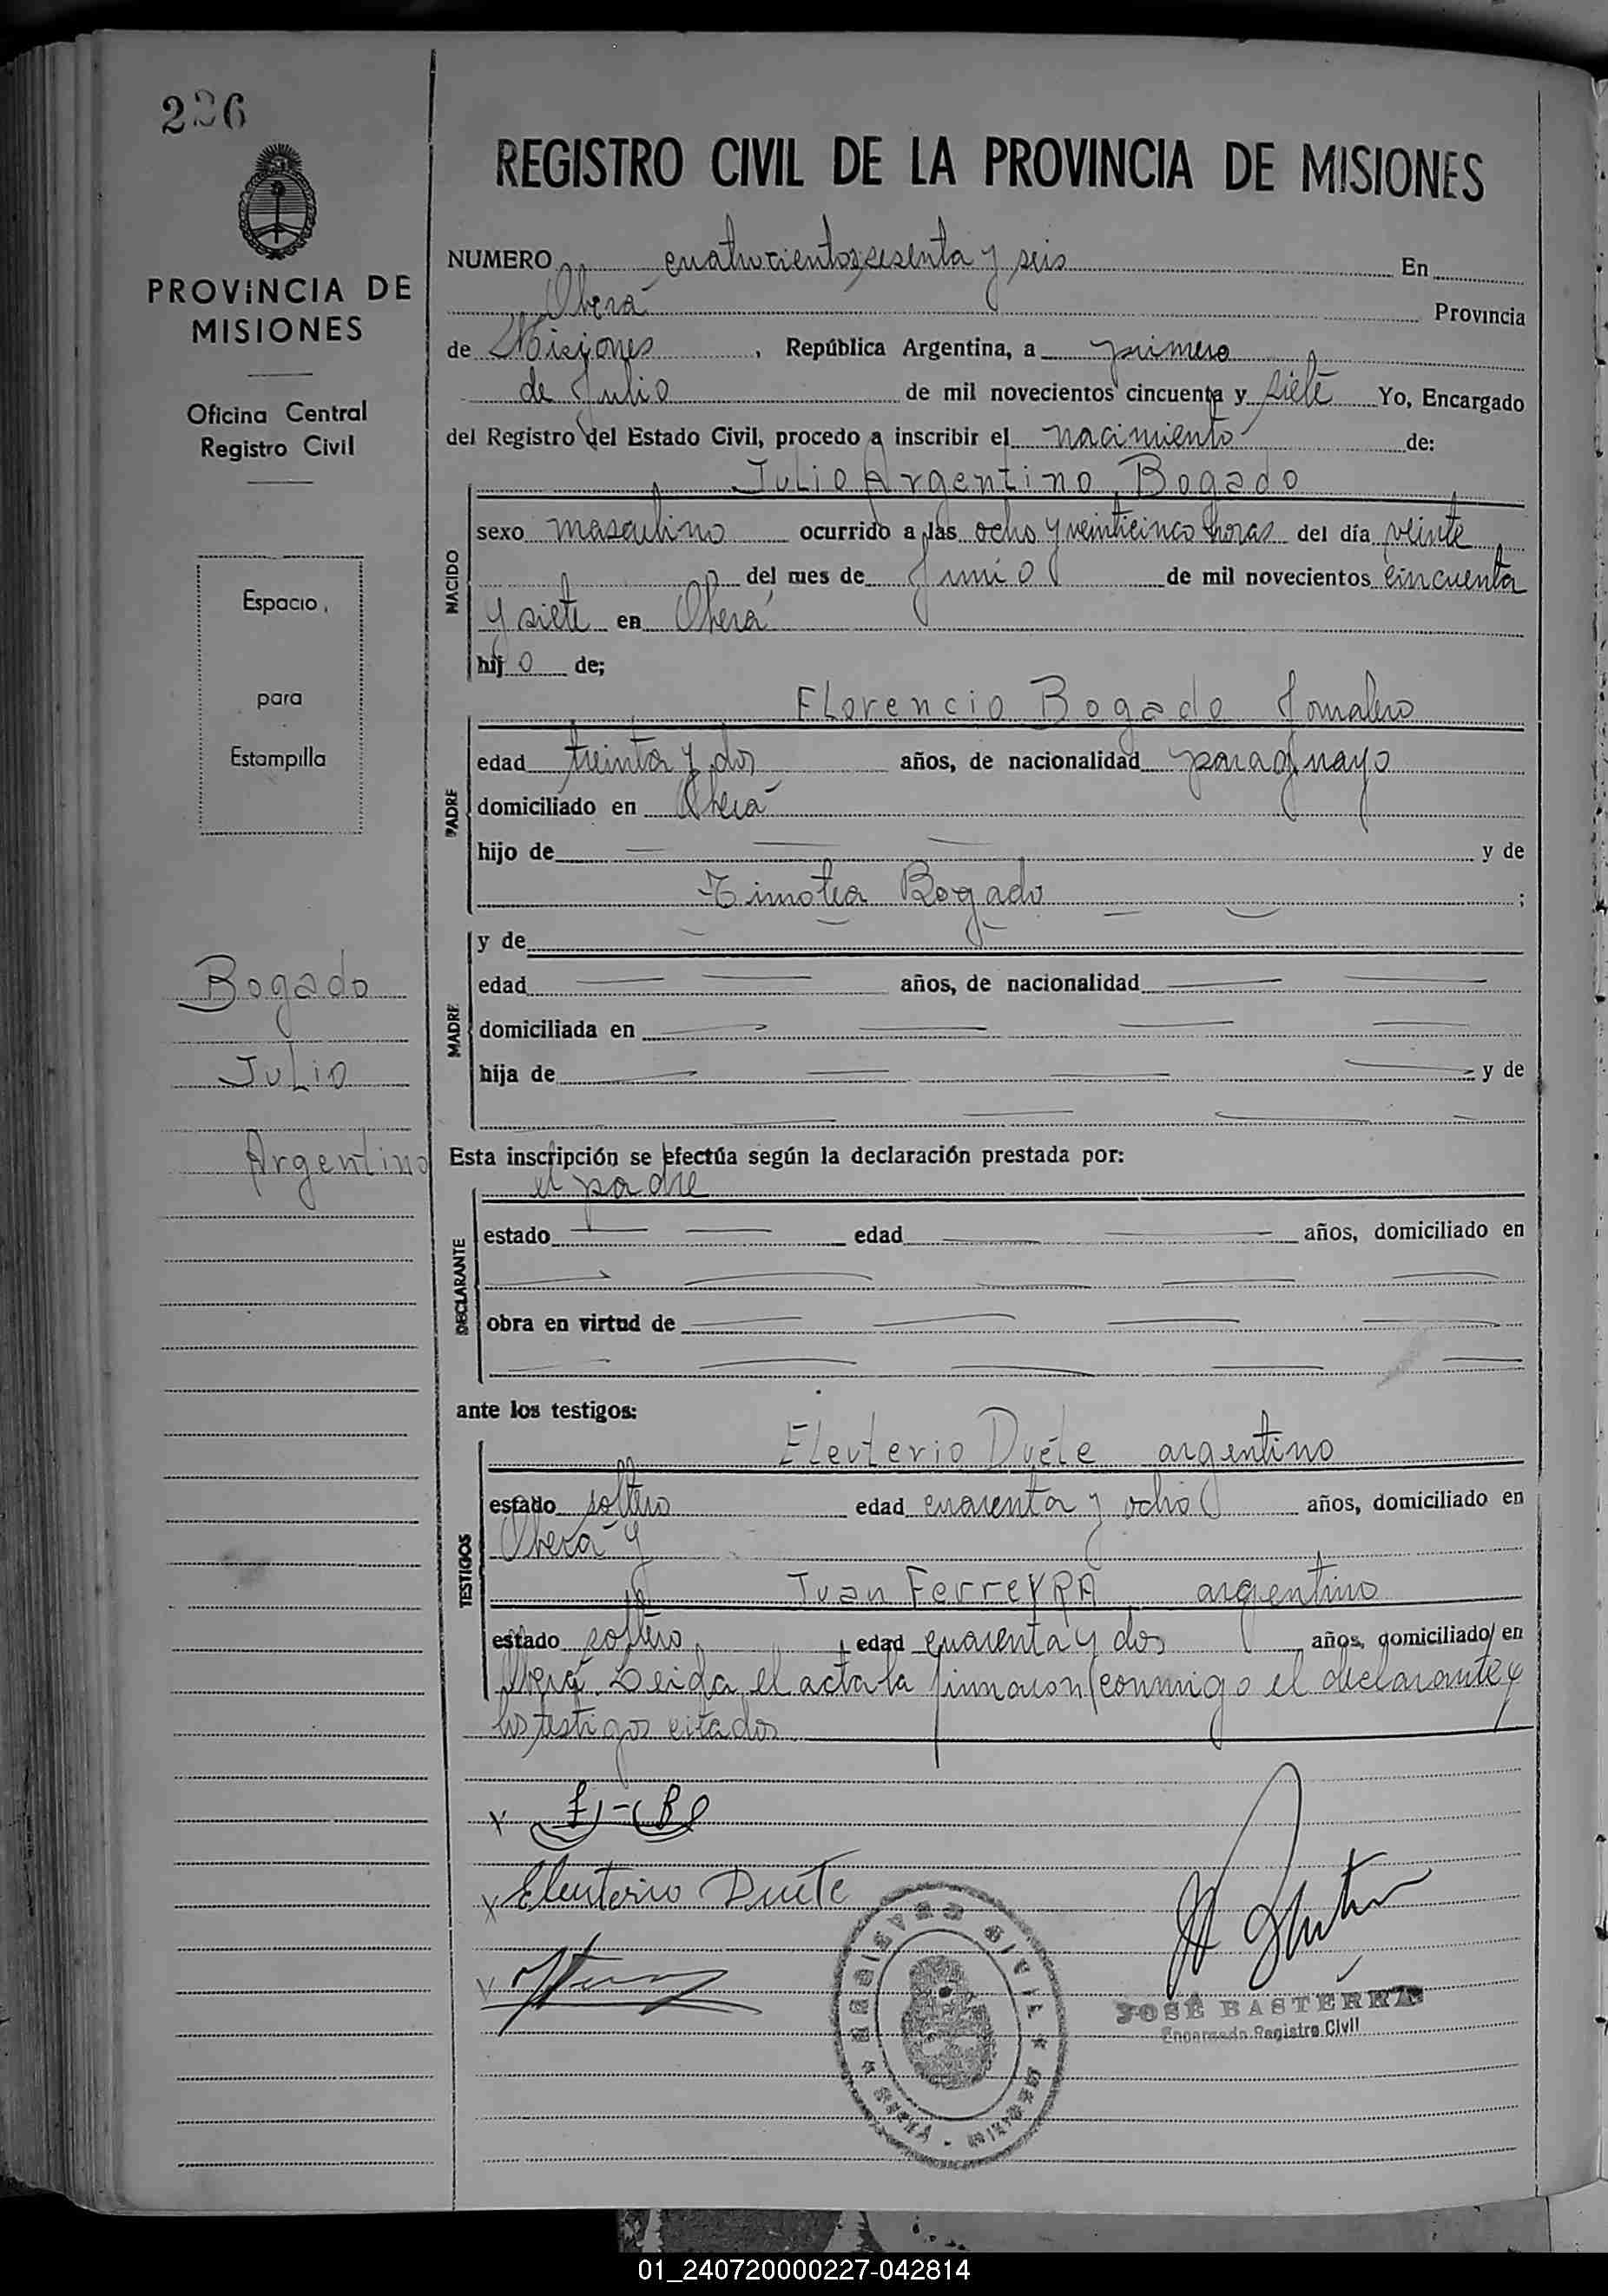 226
REGISTRO CIVIL DE LA PROVINCIA DE MISIONES
PROVINCIA DE
MISIONES
Oficina Central
Registro Civil
Espacio
para
Estampilla
Bogado
Julio
Argentino
NUMERO cuatrocientos sesenta y seis En
Oberá Provincia
de Misiones, República Argentina, a primero
de Julio de mil novecientos cincuenta y siete Yo, Encargado
del Registro del Estado Civil, procedo a inscribir el nacimiento de:
Julio Argentino Bogado
NACIDO
sexo masculino ocurrido a las ocho y veinticinco horas del día veinte
del mes de Junio de mil novecientos cincuenta
y siete en Oberá
hijo de;
Florencio Bogado Jornalero
PADRE
edad treinta y dos años, de nacionalidad paraguayo
domiciliado en Oberá
hijo de — — — y de
Timotea Bogado ;
MADRE
y de
edad años, de nacionalidad
domiciliada en
hija de y de
Esta inscripción se efectúa según la declaración prestada por:
el padre
DECLARANTE
estado edad años, domiciliado en
obra en virtud de
ante los testigos:
Eleuterio Duéte argentino
TESTIGOS
estado soltero edad cuarenta y ocho años, domiciliado en
Oberá y
Juan FerreYRA argentino
estado soltero edad cuarenta y dos años, domiciliado en
Oberá. Leida el acta la firmaron conmigo el declarante y
los testigos citados
Eleuterio Duéte
REGISTRO CIVIL
JOSÉ BASTERRA
Encargado Registro Civil
01_240720000227-042814